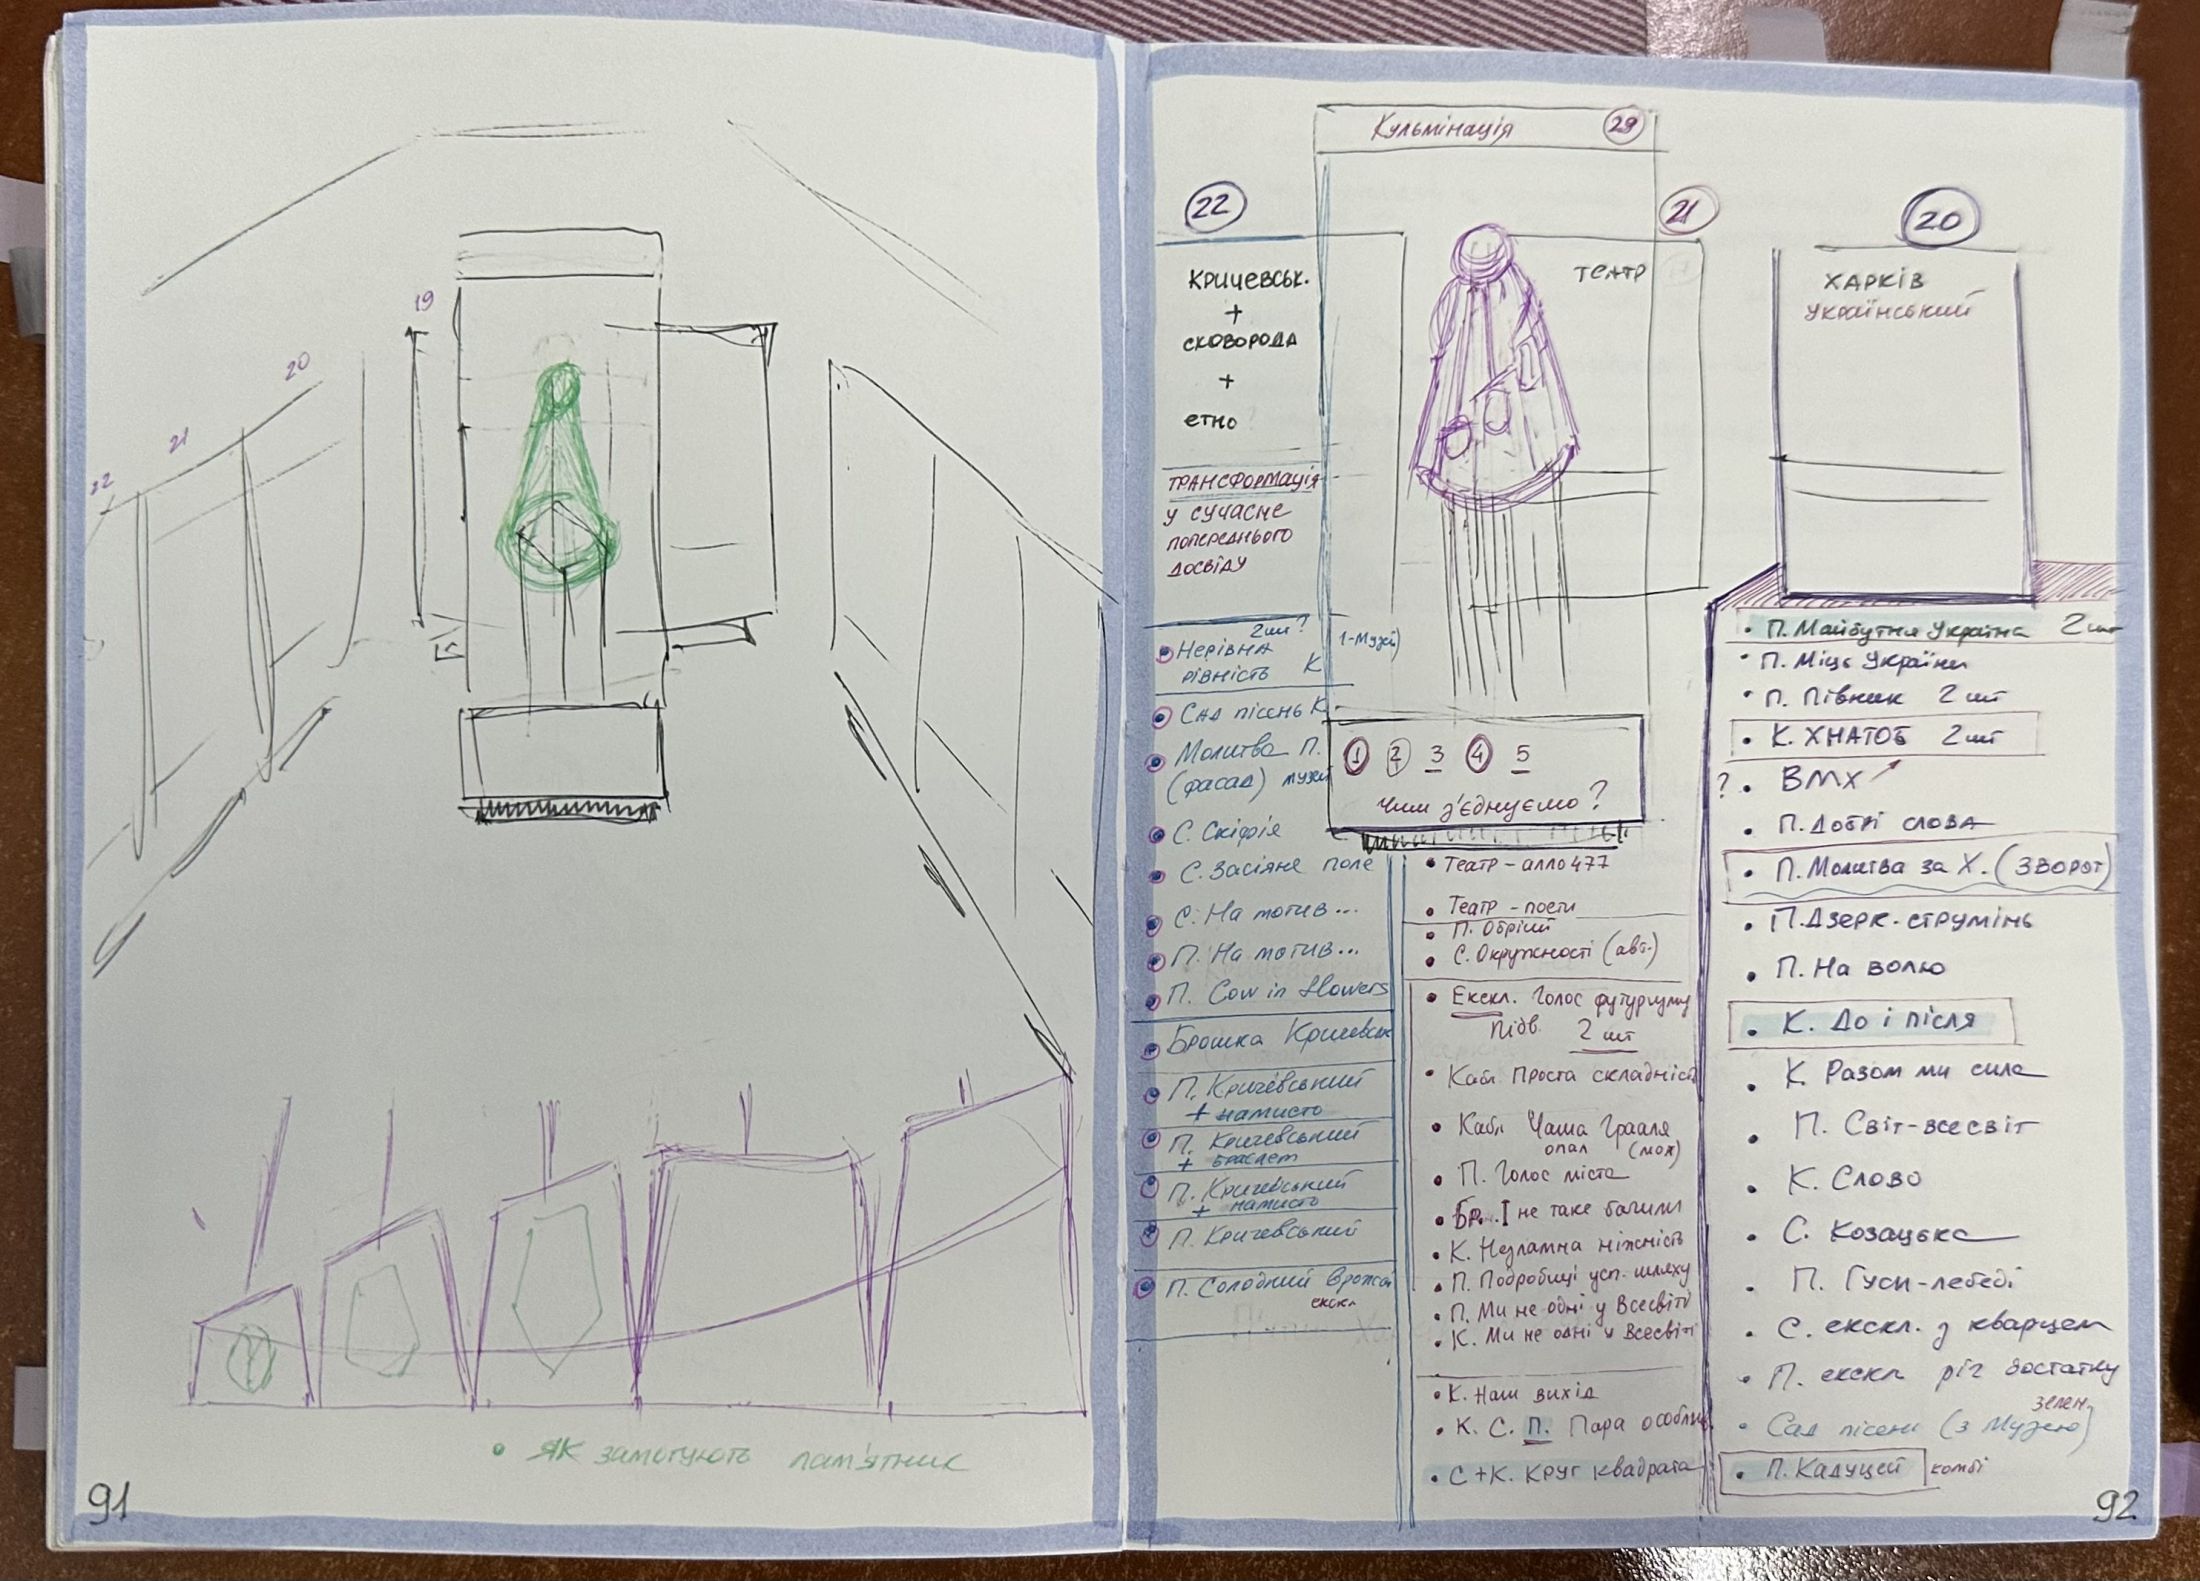 19
20
21
22
• ЯК замотують пам'ятник
91
Кульмінація 29
22
КРИЧЕВСЬК.
+
СКОВОРОДА
+
ЕТНО
ТРАНСФОРМАЦІЯ
У СУЧАСНЕ
ПОПЕРЕДНЬОГО
ДОСВІДУ
2 шт?
• Нерівна
рівність К
• Сад пісень К.
• Молитва П.
(фасад) музей
• С. Скіфія
• С. Засіяне поле
• С. На мотив...
• П. На мотив...
• П. Cow in flowers
• Брошка Кричевськ
• П. Кричевський
+ намисто
• П. Кричевський
+ браслет
• П. Кричевський
+ намисто
• П. Кричевський
• П. Солодкий врожай
екскл
21
ТЕАТР
1-Музей)
1 2 3 4 5
Чим з'єднуємо?
• Театр - алло 477
• Театр - пости
• П. Обрій
• С. Окружності (авт.)
• Ексkл. Голос футуризму
підв. 2 шт
• Кабл Проста складність
• Кабл Чаша Грааля
опал (мох)
• П. Голос міста
• Бр. І не таке бачили
• К. Незламна ніжність
• П. Подробиці усп. шляху
• П. Ми не одні у Всесвіті
• К. Ми не одні у Всесвіті
• К. Наш вихід
• К. С. П. Пара особлив
• С + К. Круг квадрата
20
ХАРКІВ
Український
• П. Майбутня Україна 2 шт
• П. Міць України
• П. Півник 2 шт
• К. ХНАТОБ 2 шт
? • ВМХ
• П. Добрі слова
• П. Молитва за Х. (ЗВОРОТ)
• П. Дзерк. струмінь
• П. На волю
• К. До і після
• К. Разом ми сила
• П. Світ-всесвіт
• К. Слово
• С. Козацька
• П. Гуси-лебеді
• С. екскл. з кварцем
• П. екскл ріг достатку
зелен.
• Сад пісень (з Музею)
• П. Кадуцей комбі
92